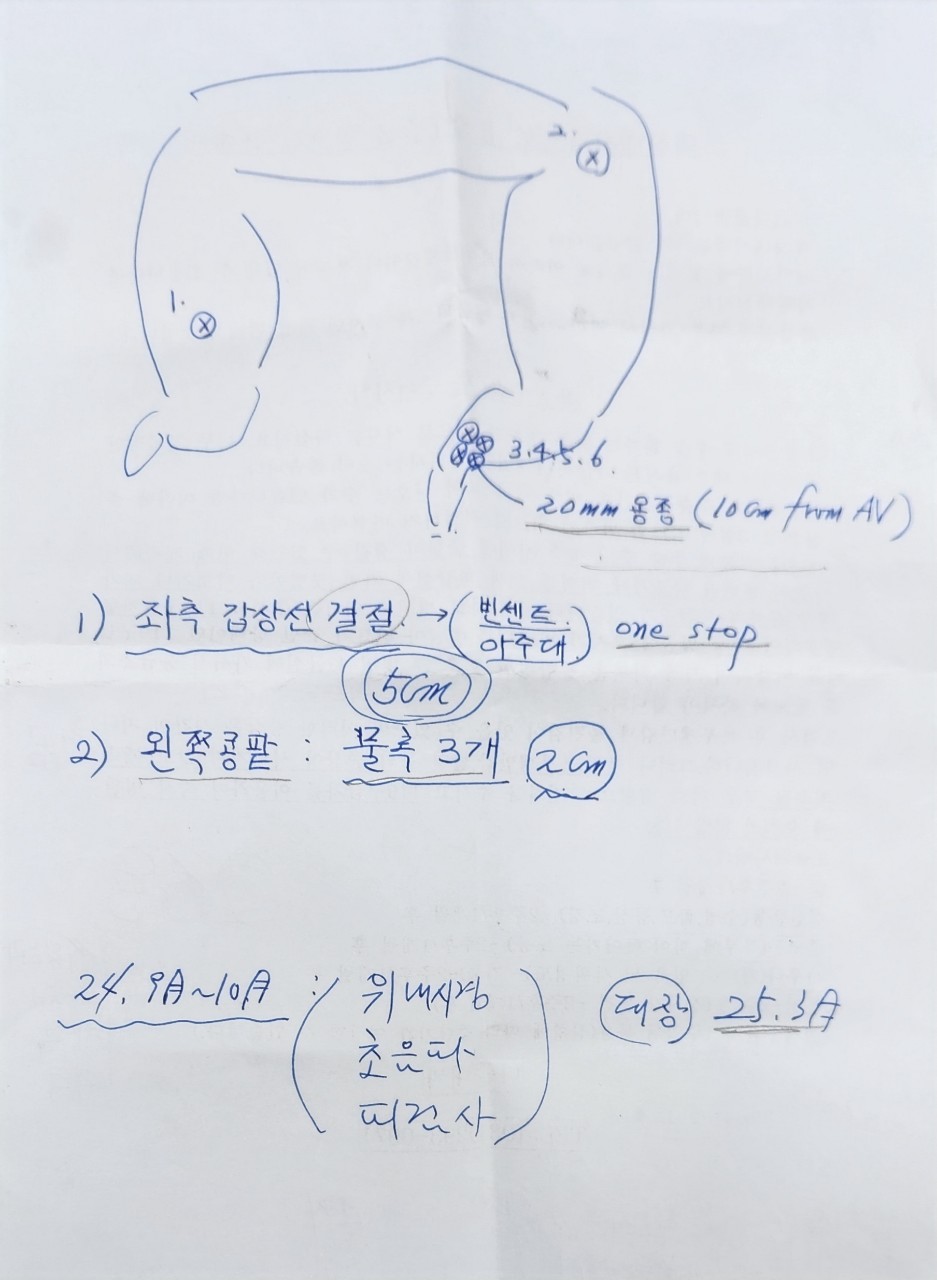 2.
1.
3.4.5.6.
20mm 용종 (10cm from AV)
1) 좌측 갑상선 결절 → (빈센트. 아주대) one stop
5cm
2) 왼쪽콩팥 : 물혹 3개 2cm
24. 9月~10月 : (위내시경 대장 25.3月
초음파
피검사)